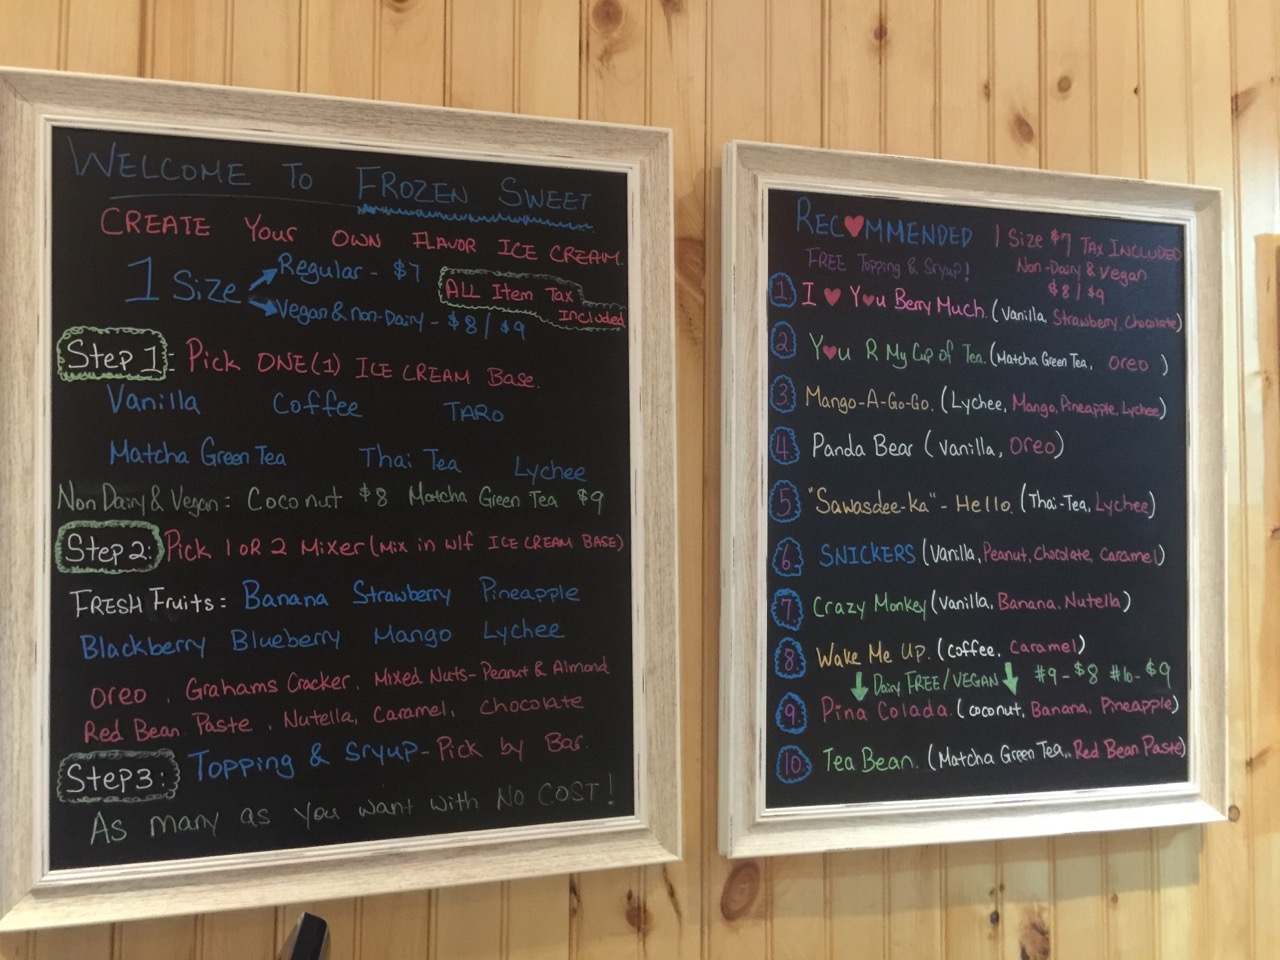 WELCOME TO FROZEN SWEET
CREATE Your OWN FLAVOR ICE CREAM.
1 Size
Regular - $7
Vegan & non-Dairy - $8 / $9
ALL Item Tax
Included
Step 1: Pick ONE(1) ICE CREAM Base.
Vanilla Coffee TARO
Matcha Green Tea Thai Tea Lychee
Non Dairy & Vegan = Coconut $8 Matcha Green Tea $9
Step 2: Pick 1 OR 2 Mixer (Mix in wlf ICE CREAM BASE)
FRESH Fruits: Banana Strawberry Pineapple
Blackberry Blueberry Mango Lychee
Oreo, Grahams Cracker, Mixed Nuts - Peanut & Almond
Red Bean Paste, Nutella, Caramel, Chocolate
Step3: Topping & Sryup - Pick by Bar.
As many as You want with NO COST!
REC♥MMENDED 1 Size $7 TAX INCLUDED
FREE Topping & Sryup!
Non-Dairy & Vegan
$8 / $9
1 I ♥ Y♥u Berry Much. (Vanilla, Strawberry, Chocolate)
2 Y♥u R My Cup of Tea. (Matcha Green Tea, Oreo)
3. Mango-A-Go-Go. (Lychee, Mango, Pineapple, Lychee)
4. Panda Bear (Vanilla, Oreo)
5 "Sawasdee-ka" - Hello. (Thai-Tea, Lychee)
6. SNICKERS (Vanilla, Peanut, Chocolate, Caramel)
7. Crazy Monkey (Vanilla, Banana, Nutella)
8. Wake Me Up. (Coffee, Caramel)
Dairy FREE/VEGAN #9 - $8 #10 - $9
9. Pina Colada. (Coconut, Banana, Pineapple)
10. Tea Bean. (Matcha Green Tea, Red Bean Paste)